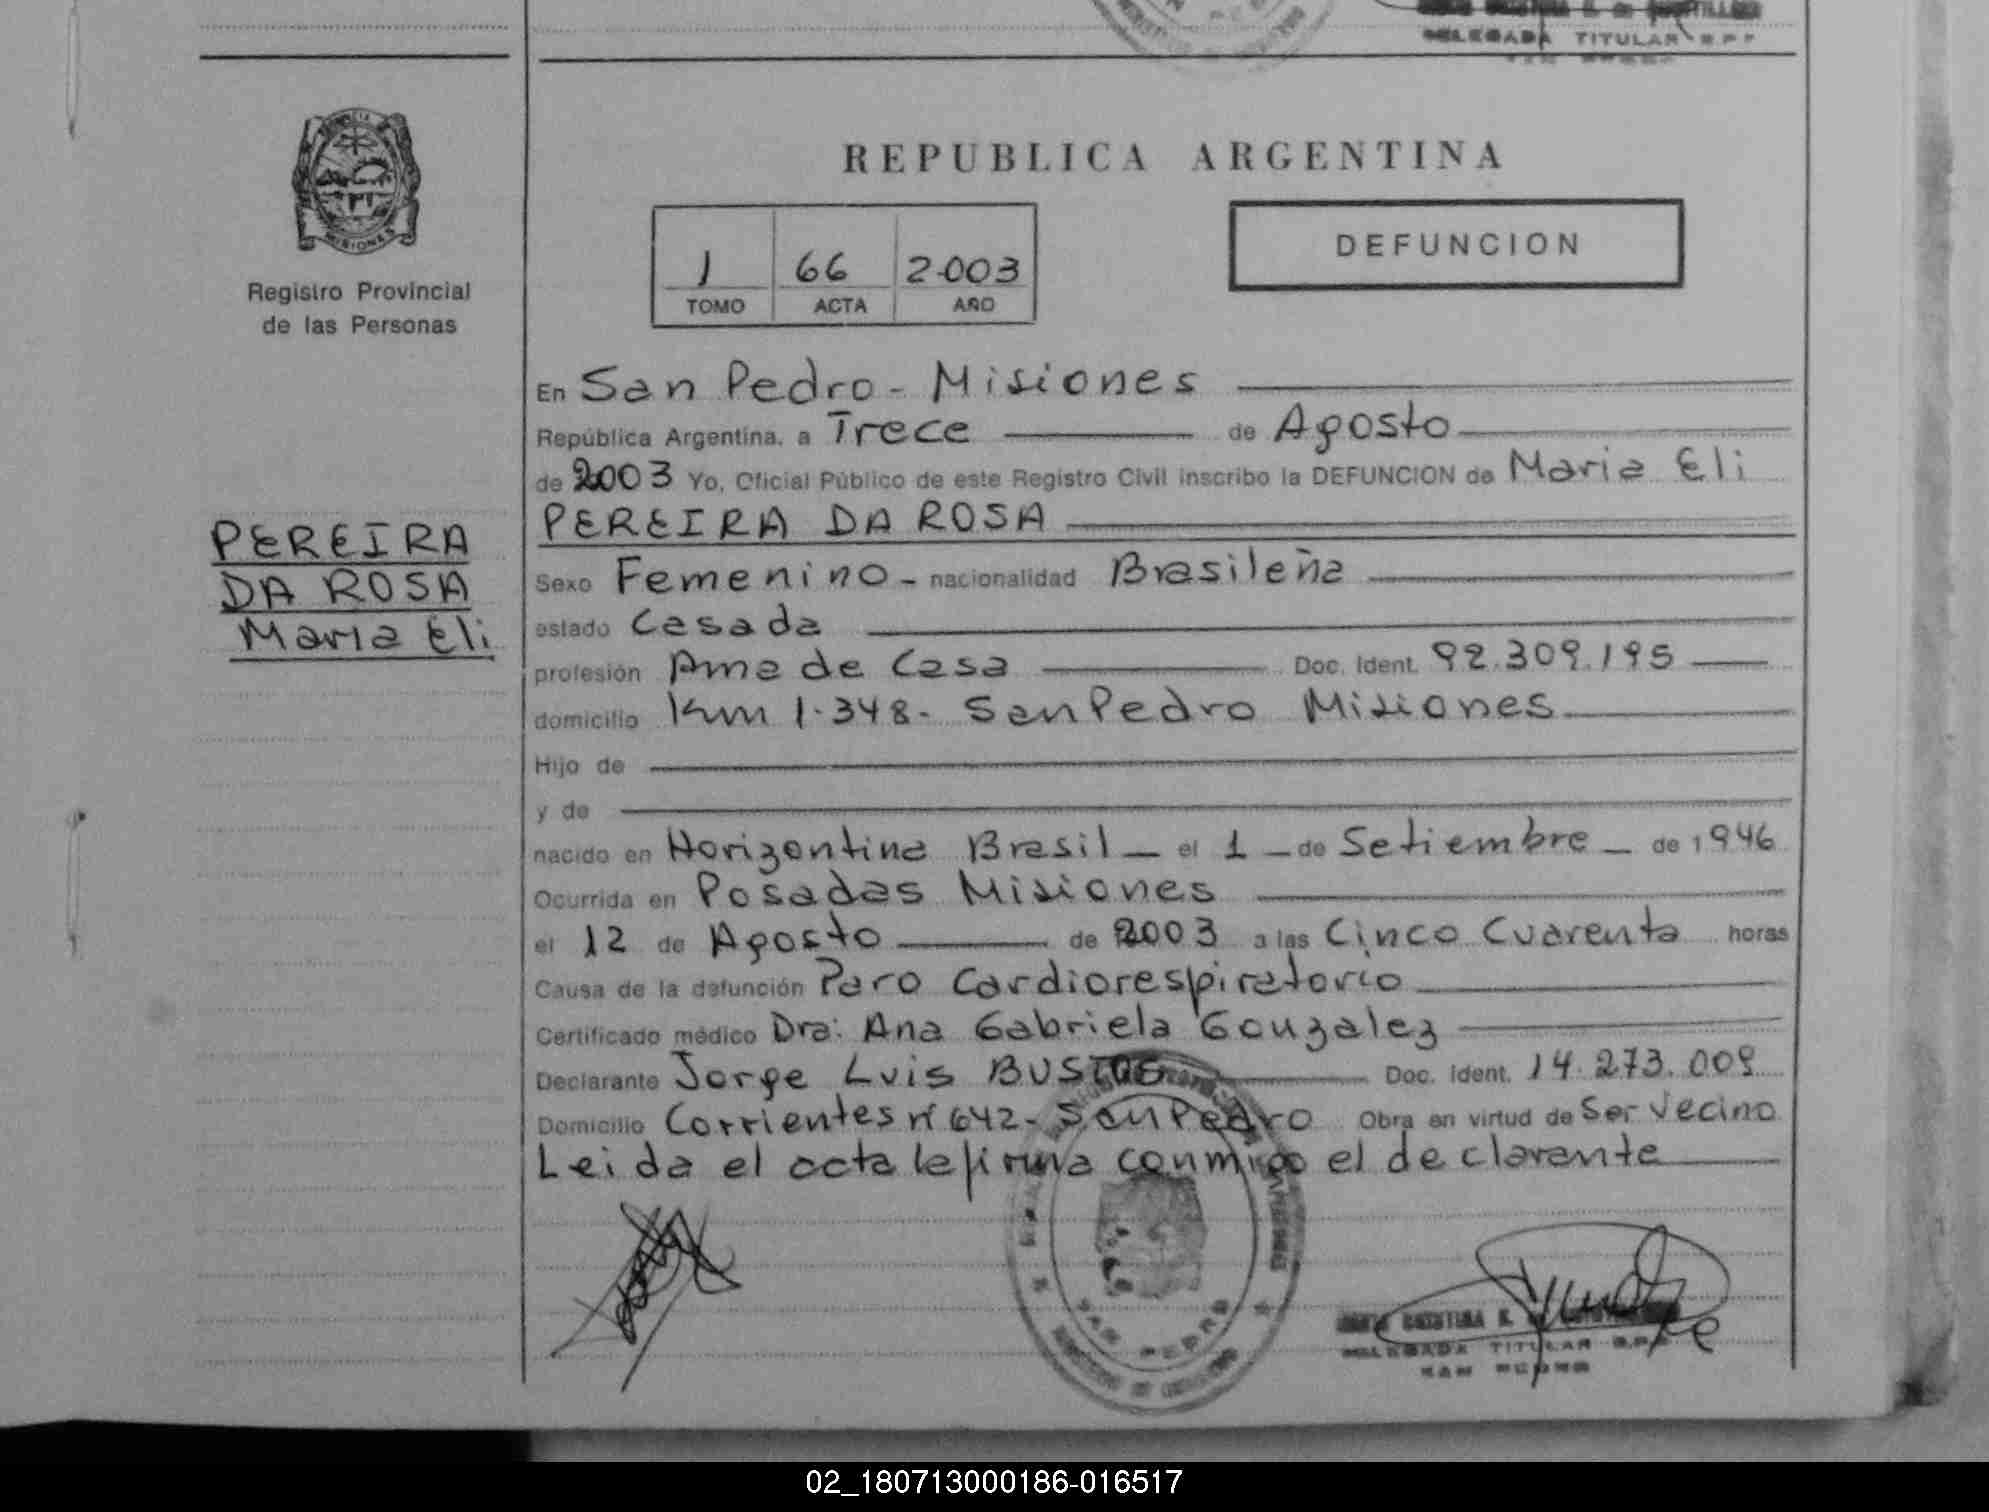 DELEGADA TITULAR R.P.P
REPUBLICA ARGENTINA
MISIONES
Registro Provincial
de las Personas
1 66 2.003
TOMO ACTA AÑO
DEFUNCION
PEREIRA
DA ROSA
Maria Eli
En San Pedro - Misiones
República Argentina, a Trece de Agosto
de 2003 Yo, Oficial Público de este Registro Civil inscribo la DEFUNCION de Maria Eli
PEREIRA DA ROSA
Sexo Femenino - nacionalidad Brasileña
estado Casada
profesión Ama de Casa Doc. Ident. 92.309.195
domicilio Km 1.348 - San Pedro Misiones
Hijo de
y de
nacido en Horizontina Brasil - el 1 - de Setiembre - de 1946
Ocurrida en Posadas Misiones
el 12 de Agosto de 2003 a las Cinco Cuarenta horas
Causa de la defunción Paro Cardiorespiratorio
Certificado médico Dra: Ana Gabriela Gonzalez
Declarante Jorge Luis BUSTOS Doc. Ident. 14.273.009
Domicilio Corrientes nº 642 - San Pedro Obra en virtud de Ser Vecino
Leida el acta la firma conmigo el declarante
SAN PEDRO
DELEGADA TITULAR R.P.P
SAN PEDRO
02_180713000186-016517